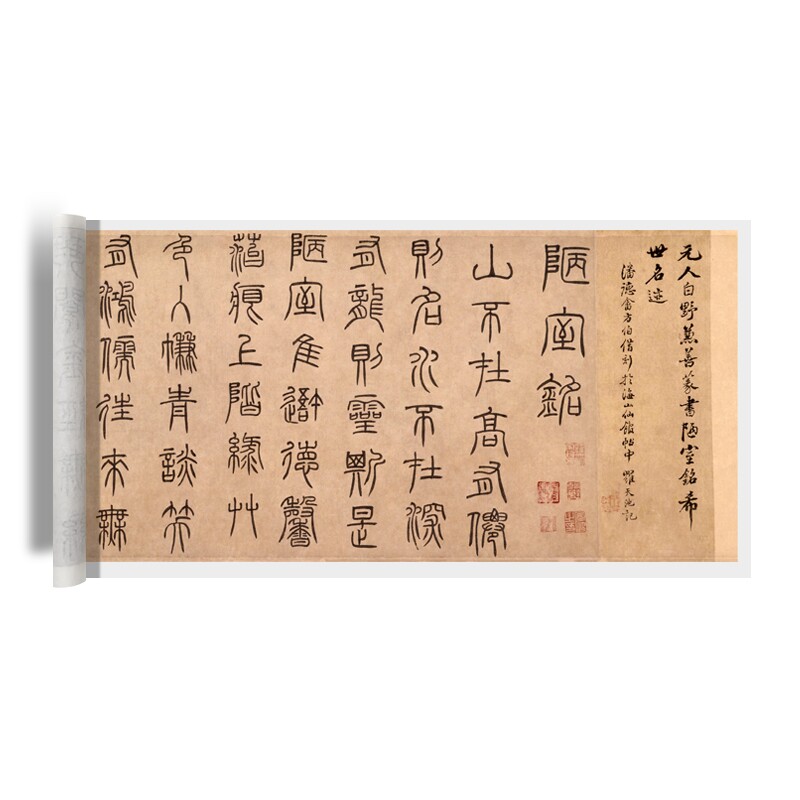 元人白野兼善篆書陋室銘希
世名迹
潘德畬方伯借刻於海山仙館帖中 羅天池記
陋室銘
山不在高有僊
則名水不在深
有龍則靈斯是
陋室隹吾德馨
菭痕上階綠艸
色入㡘青談笑
有鴻儒往來無